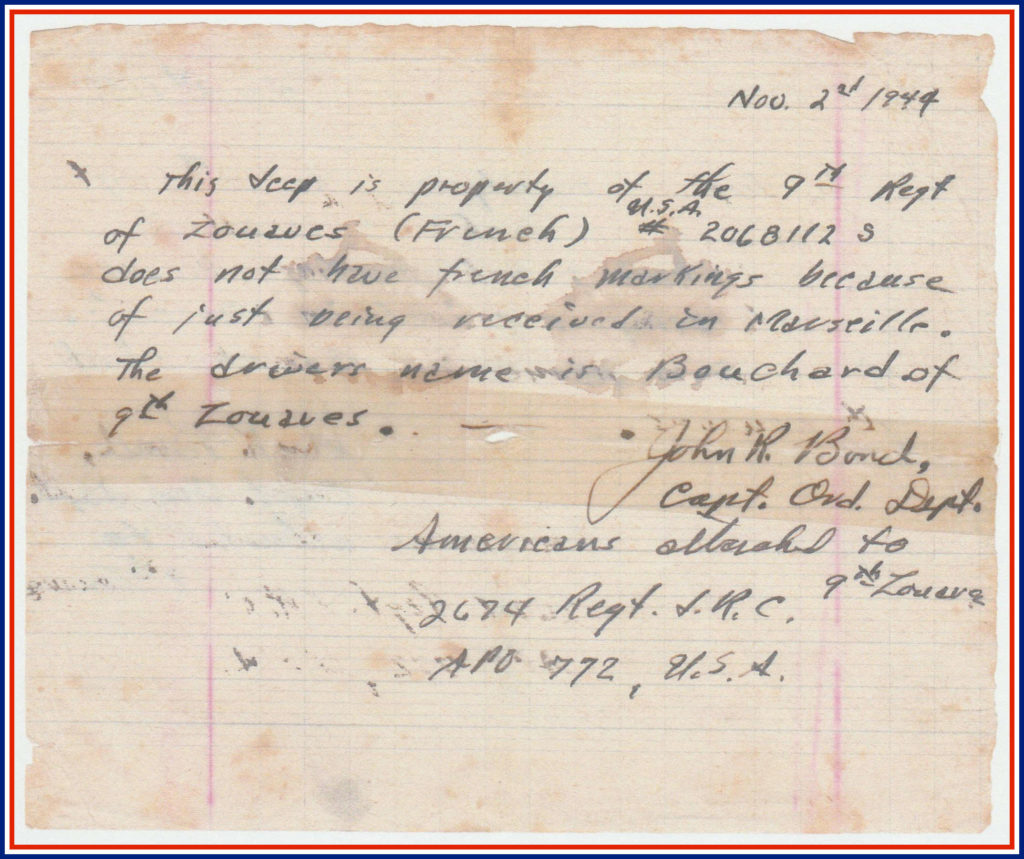 Nov. 2nd 1944
This Jeep is property of the 9th Regt
U.S.A.
of Zouaves (French) # 2068112 S
does not have french markings because
of just being received in Marseille.
The drivers name is Bouchard of
9th Zouaves.
John R. Bond,
Capt. Ord. Dept.
Americans attached to
9th Zouave
2674 Regt. J.R.C.
APO 772, U.S.A.